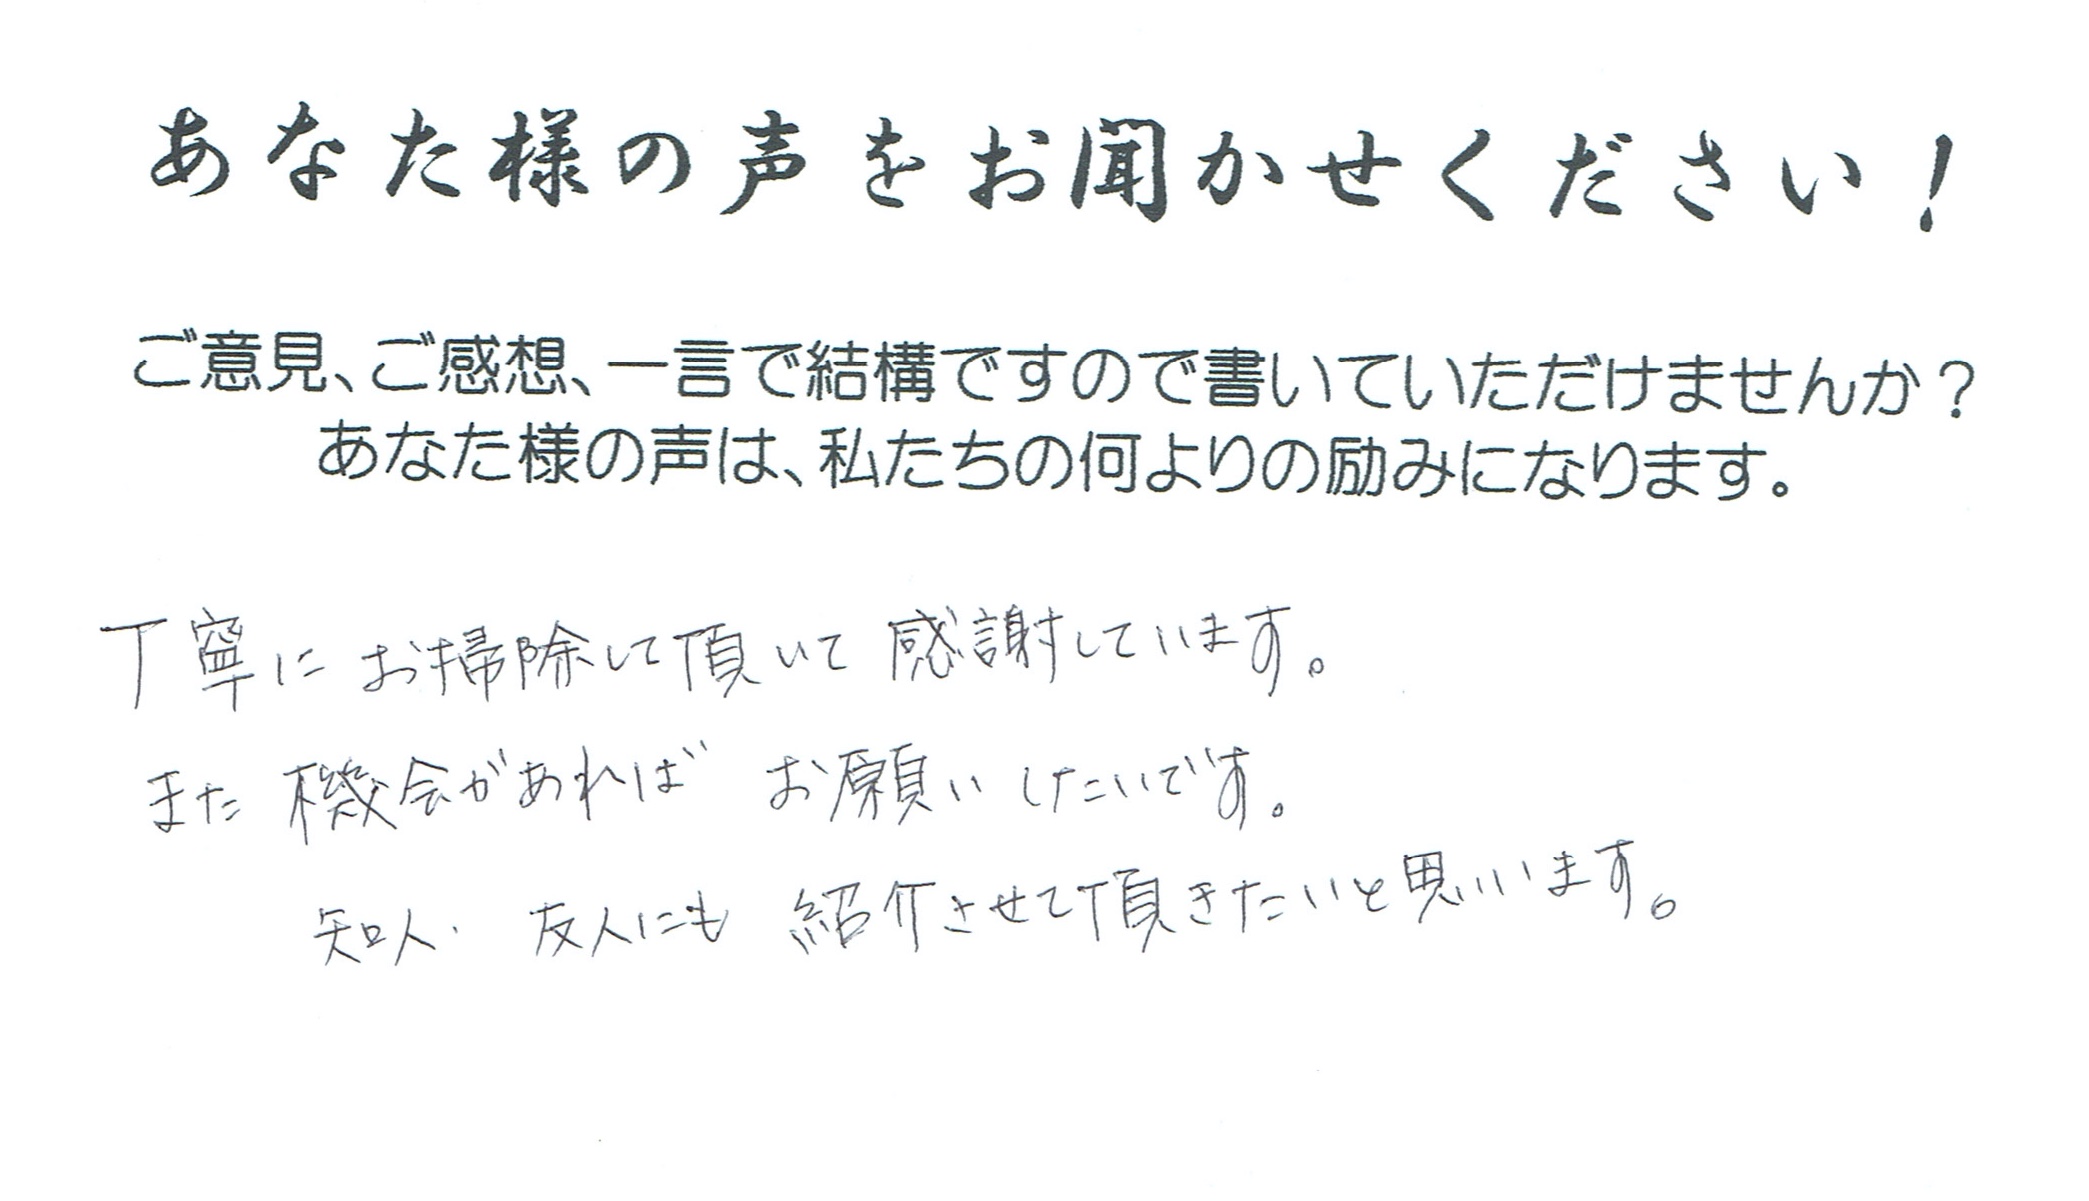 あなた様の声をお聞かせください！
ご意見、ご感想、一言で結構ですので書いていただけませんか？
あなた様の声は、私たちの何よりの励みになります。
丁寧にお掃除して頂いて感謝しています。
また機会があればお願いしたいです。
知人・友人にも紹介させて頂きたいと思います。